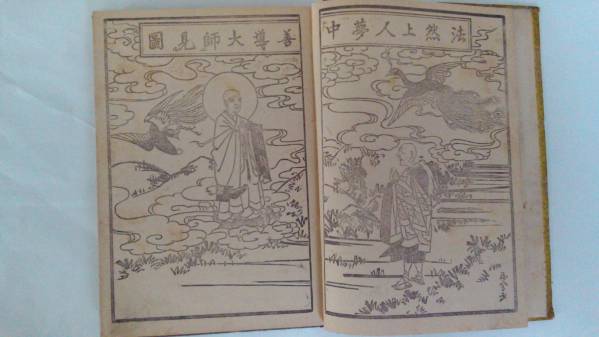 法然上人夢中
善導大師見圖